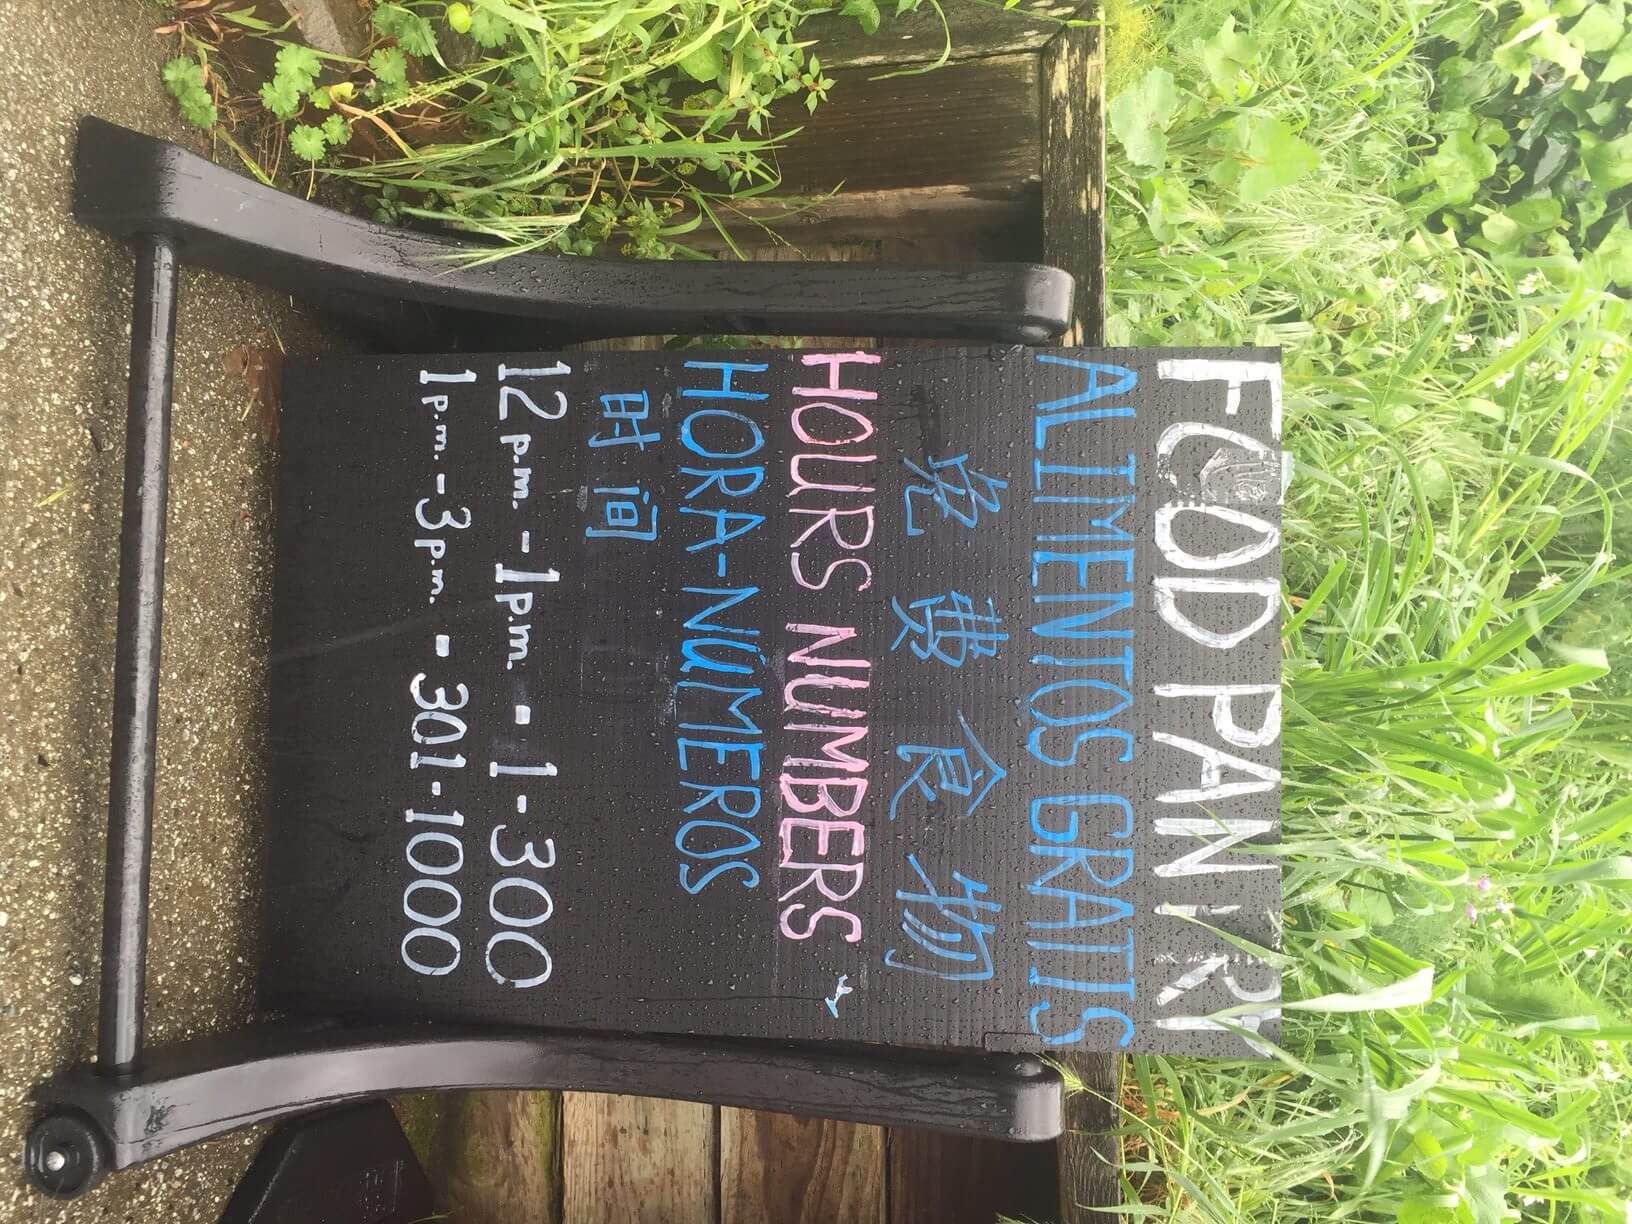 FOOD PANTRY
ALIMENTOS GRATIS
免费食物
HOURS NUMBERS
HORA-NÚMEROS
时间
12 p.m. - 1 p.m. - 1-300
1 p.m. - 3 p.m. - 301-1000